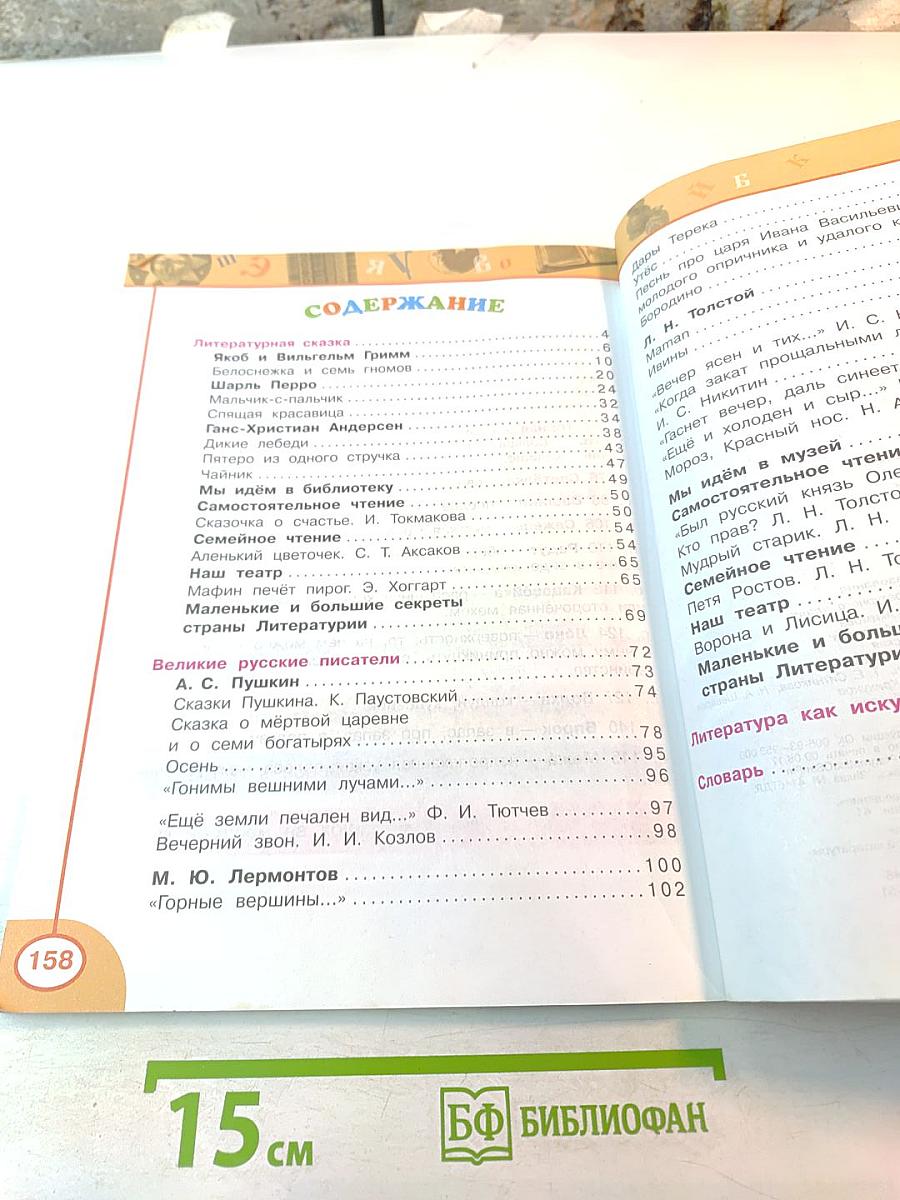 СОДЕРЖАНИЕ
Литературная сказка ........ 4
Якоб и Вильгельм Гримм ........ 6
Белоснежка и семь гномов ........ 10
Шарль Перро ........ 20
Мальчик-с-пальчик ........ 24
Спящая красавица ........ 32
Ганс-Христиан Андерсен ........ 34
Дикие лебеди ........ 38
Пятеро из одного стручка ........ 43
Чайник ........ 47
Мы идём в библиотеку ........ 49
Самостоятельное чтение ........ 50
Сказочка о счастье. И. Токмакова ........ 50
Семейное чтение ........ 54
Аленький цветочек. С. Т. Аксаков ........ 54
Наш театр ........ 65
Мафин печёт пирог. Э. Хоггарт ........ 65
Маленькие и большие секреты
страны Литературии ........ 69
Великие русские писатели ........ 72
А. С. Пушкин ........ 73
Сказки Пушкина. К. Паустовский ........ 74
Сказка о мёртвой царевне
и о семи богатырях ........ 78
Осень ........ 95
«Гонимы вешними лучами...» ........ 96
«Ещё земли печален вид...» Ф. И. Тютчев ........ 97
Вечерний звон. И. И. Козлов ........ 98
М. Ю. Лермонтов ........ 100
«Горные вершины...» ........ 102
158
Й Б К
Дары Терека
Утёс
Песнь про царя Ивана Васильев
молодого опричника и удалого к
Бородино
Л. Н. Толстой
Maman
Ивины
«Вечер ясен и тих...» И. С.
«Когда закат прощальными л
И. С. Никитин
«Гаснет вечер, даль синеет
«Ещё и холоден и сыр...»
Мороз, Красный нос. Н. А
Мы идём в музей
Самостоятельное чтени
«Был русский князь Оле
Кто прав? Л. Н. Толсто
Мудрый старик. Л. Н.
Семейное чтение
Петя Ростов. Л. Н. То
Наш театр
Ворона и Лисица. И.
Маленькие и больш
страны Литератури
Литература как иску
Словарь
15 см
БФ БИБЛИОФАН